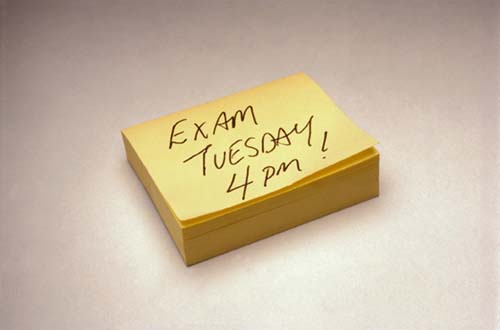 EXAM
TUESDAY
4 PM!